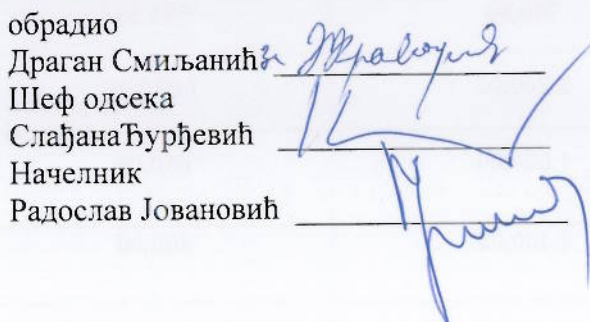 обрадио
Драган Смиљанић за
Шеф одсека
СлађанаЂурђевић
Начелник
Радослав Јовановић